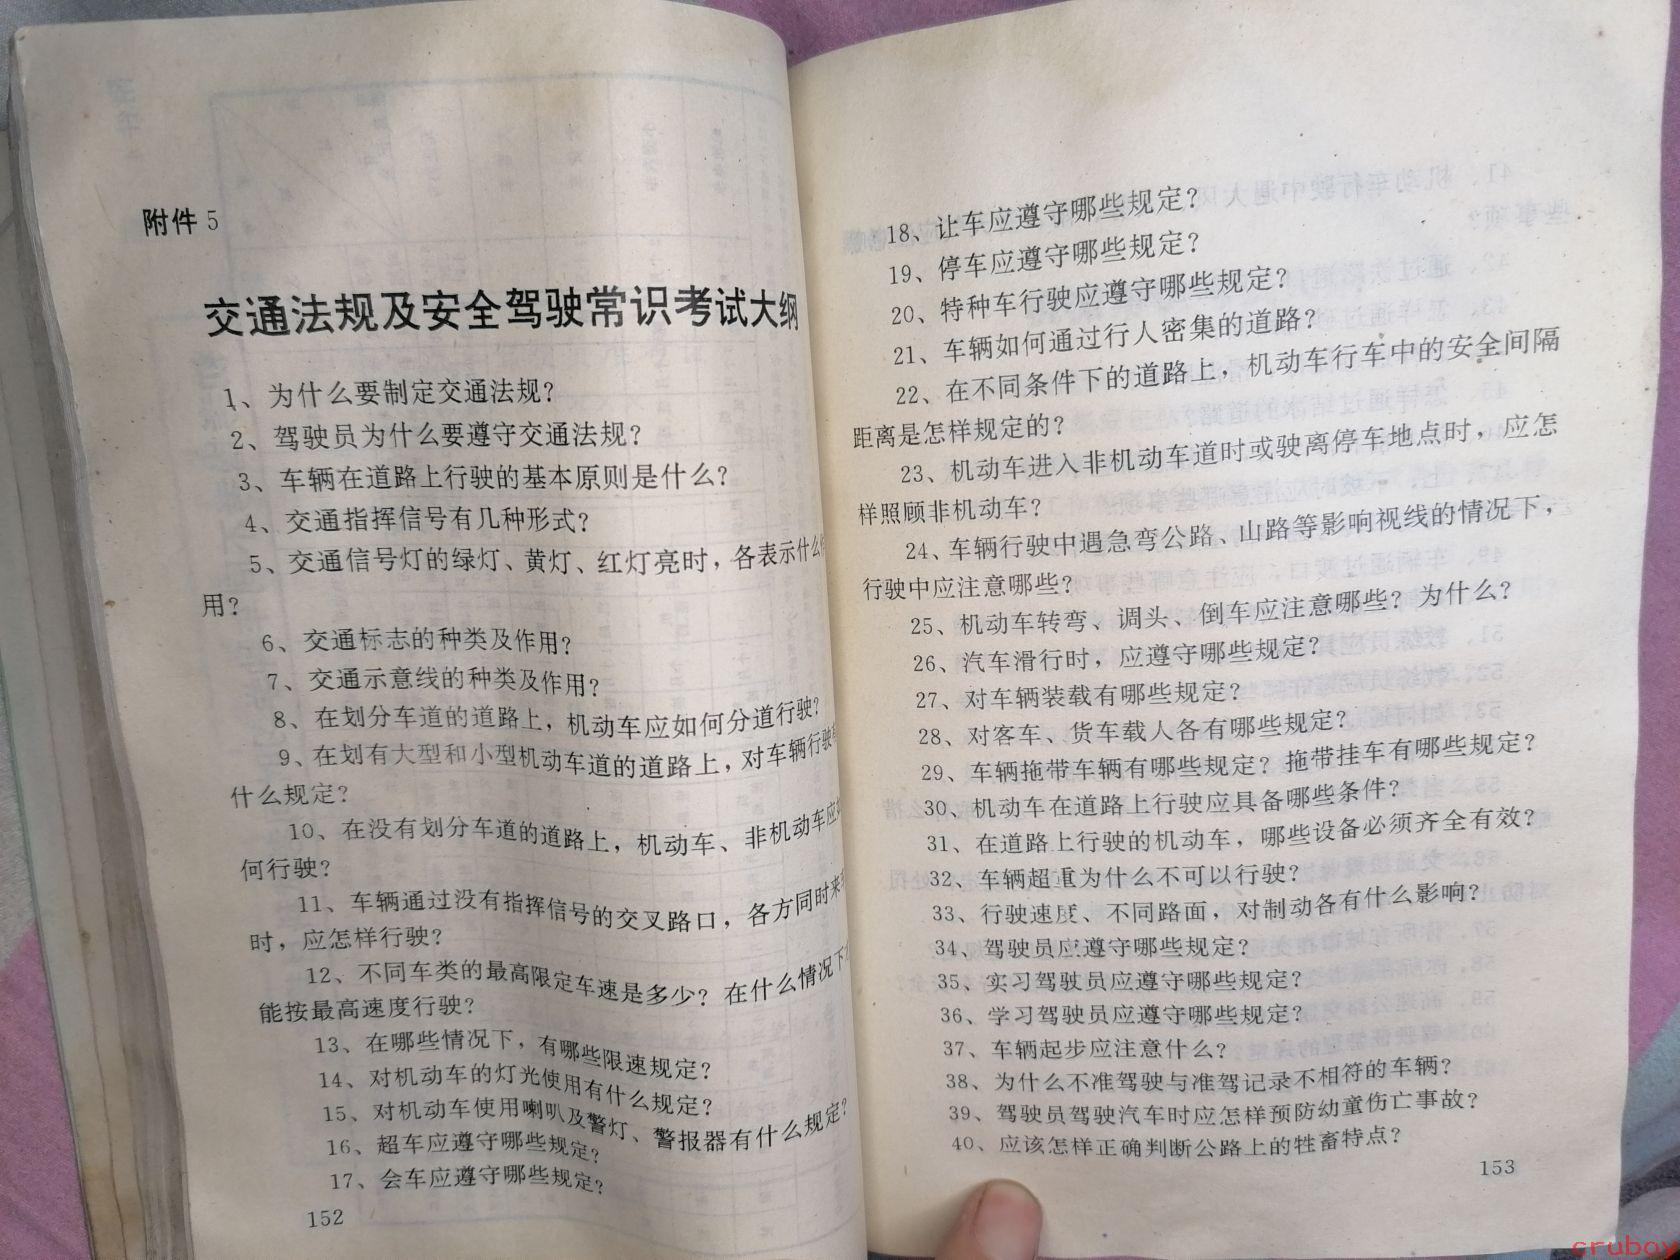 附件 5
交通法规及安全驾驶常识考试大纲
1、为什么要制定交通法规？
2、驾驶员为什么要遵守交通法规？
3、车辆在道路上行驶的基本原则是什么？
4、交通指挥信号有几种形式？
5、交通信号灯的绿灯、黄灯、红灯亮时，各表示什么
用？
6、交通标志的种类及作用？
7、交通示意线的种类及作用？
8、在划分车道的道路上，机动车应如何分道行驶？
9、在划有大型和小型机动车道的道路上，对车辆行驶
什么规定？
10、在没有划分车道的道路上，机动车、非机动车应
何行驶？
11、车辆通过没有指挥信号的交叉路口，各方同时来
时，应怎样行驶？
12、不同车类的最高限定车速是多少？在什么情况下
能按最高速度行驶？
13、在哪些情况下，有哪些限速规定？
14、对机动车的灯光使用有什么规定？
15、对机动车使用喇叭及警灯、警报器有什么规定？
16、超车应遵守哪些规定？
17、会车应遵守哪些规定？
152
18、让车应遵守哪些规定？
19、停车应遵守哪些规定？
20、特种车行驶应遵守哪些规定？
21、车辆如何通过行人密集的道路？
22、在不同条件下的道路上，机动车行车中的安全间隔
距离是怎样规定的？
23、机动车进入非机动车道时或驶离停车地点时，应怎
样照顾非机动车？
24、车辆行驶中遇急弯公路、山路等影响视线的情况下，
行驶中应注意哪些？
25、机动车转弯、调头、倒车应注意哪些？为什么？
26、汽车滑行时，应遵守哪些规定？
27、对车辆装载有哪些规定？
28、对客车、货车载人各有哪些规定？
29、车辆拖带车辆有哪些规定？拖带挂车有哪些规定？
30、机动车在道路上行驶应具备哪些条件？
31、在道路上行驶的机动车，哪些设备必须齐全有效？
32、车辆超重为什么不可以行驶？
33、行驶速度、不同路面，对制动各有什么影响？
34、驾驶员应遵守哪些规定？
35、实习驾驶员应遵守哪些规定？
36、学习驾驶员应遵守哪些规定？
37、车辆起步应注意什么？
38、为什么不准驾驶与准驾记录不相符的车辆？
39、驾驶员驾驶汽车时应怎样预防幼童伤亡事故？
40、应该怎样正确判断公路上的牲畜特点？
153
crubox